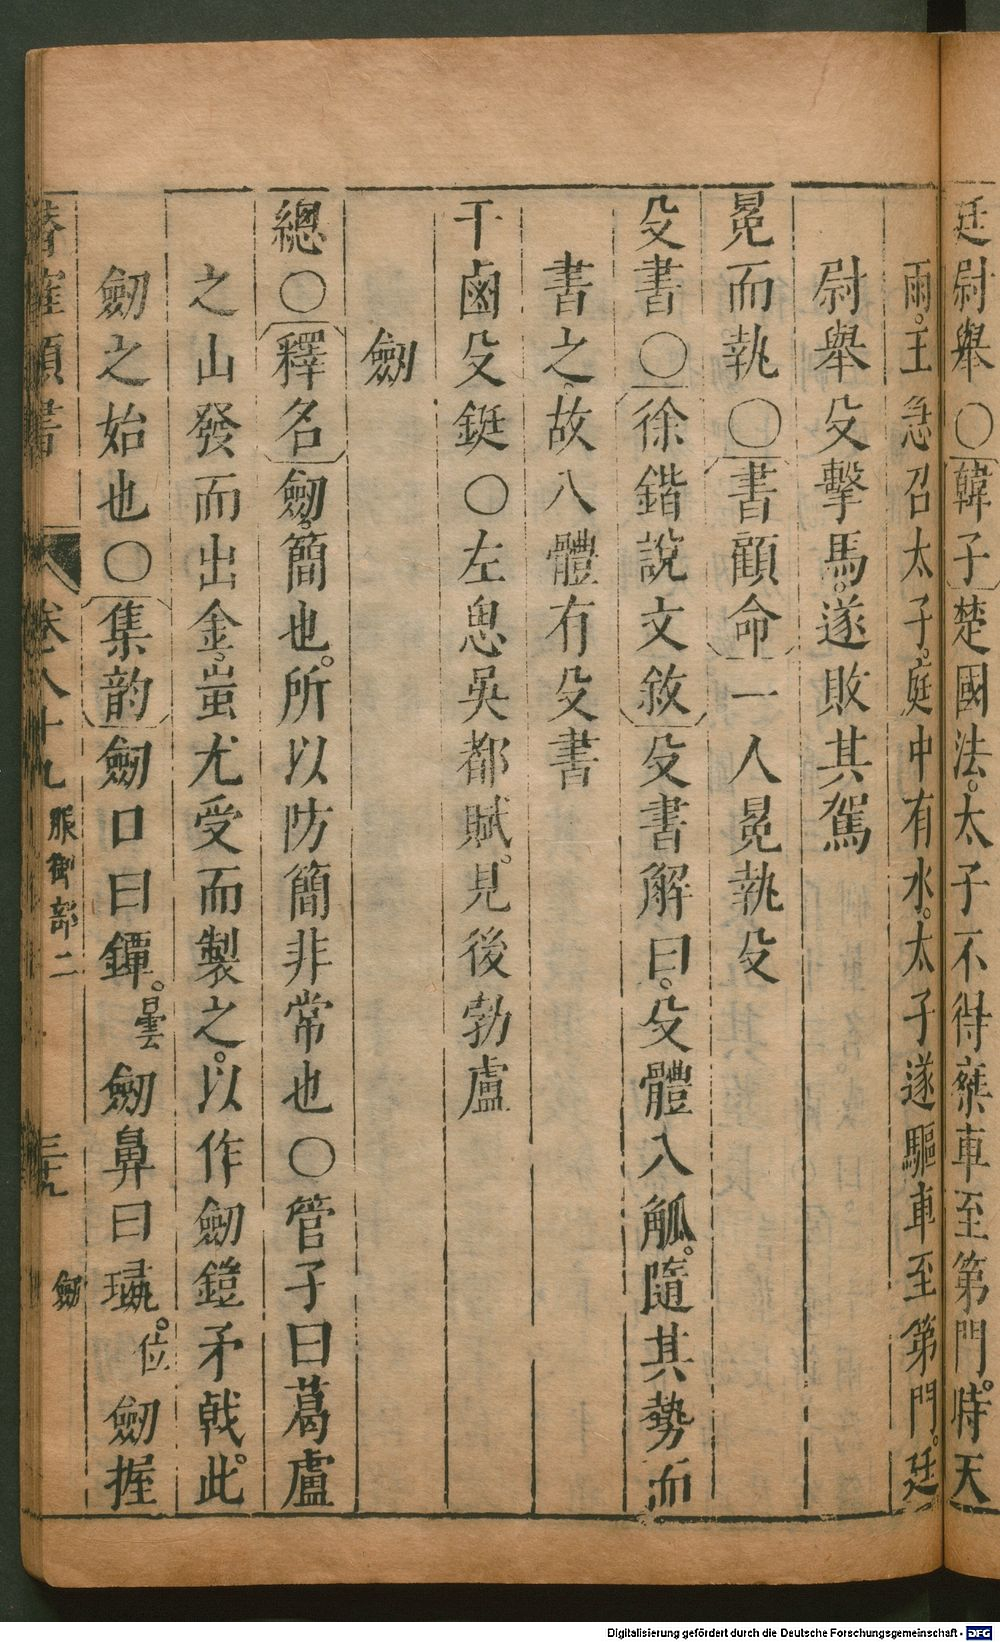 廷尉舉○韓子楚國法。太子不得乗車至第門。時天
雨。王急召太子。庭中有水。太子遂驅車至第門。廷
尉舉殳擊馬。遂敗其駕
冕而執○書顧命一人冕執殳
殳書○徐鍇說文敘殳書解曰。殳體八觚。隨其勢而
書之。故八體有殳書
干鹵殳鋌○左思吳都賦。見後勃盧
劒
總○釋名劒。簡也。所以防簡非常也○管子曰葛盧
之山發而出金。蚩尤受而製之。以作劒鎧矛戟。此
劒之始也○集韵劒口曰鐔。曇劒鼻曰璏。位劒握
卷八十九 服御部二 三十九 劒
Digitalisierung gefördert durch die Deutsche Forschungsgemeinschaft - DFG